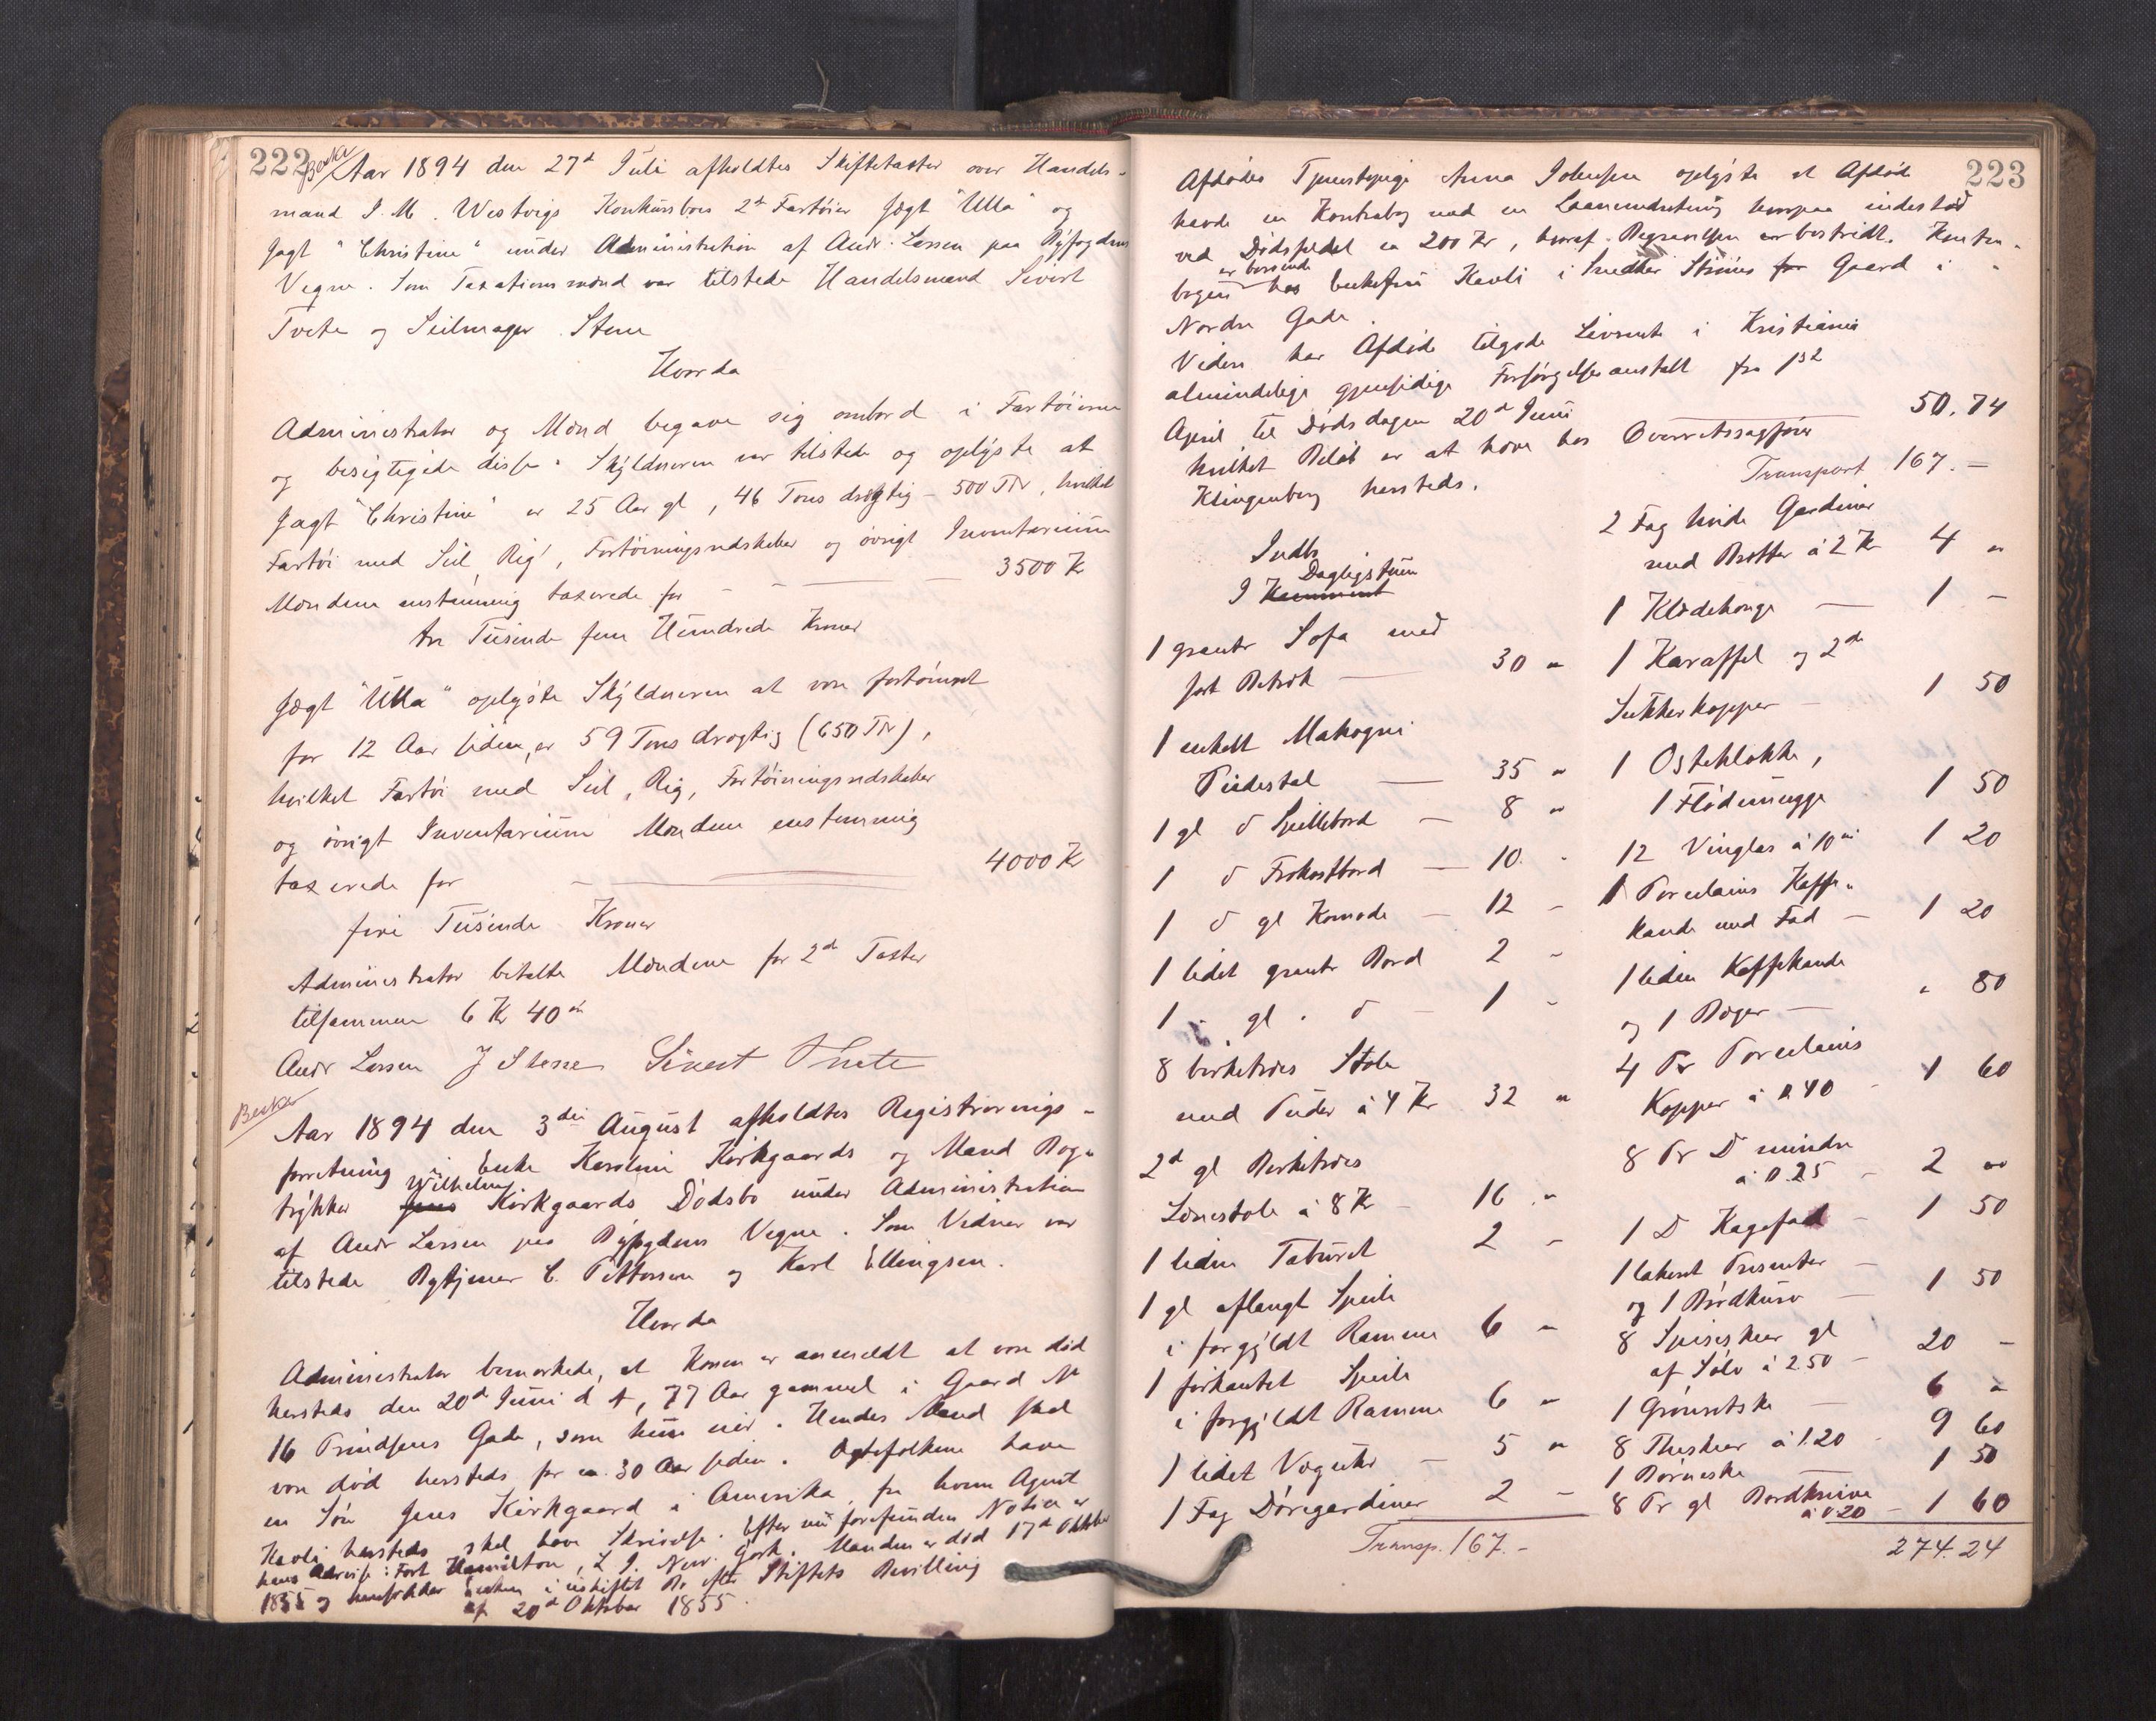 222
Aar 1894 den 27d Juli afholdtes Skiftetaxter over Handels-
mand I. M. Westvigs Konkursboes 2de Fartöier Jægt "Ulla" og
Jagt "Christine" under Administration af Andr. Larsen paa Byfogdens
Vegne. Som Taxationsmænd var tilstede Handelsmand Sivert
Tvete og Seilmager Stene
Hvorda
Administrator og Mænd begave sig ombord i Fartöierne
og besigtigede disse. Skyldneren var tilstede og oplyste at
Jagt "Christine" er 25 Aar gl, 46 Tons drægtig - 500 Tdr, hvilket
Fartöi med Seil, Rig, Fortöiningsredskaber og övrigt Inventarium
Mændene enstemmig taxerede for 3500 Kr
tre Tusinde fem Hundrede Kroner
Jægt "Ulla" oplyste Skyldneren at være fortömret
for 12 Aar siden, er 59 Tons drægtig (650 Tdr),
hvilket Fartöi med Seil, Rig, Fortöiningsredskaber
og övrigt Inventarium Mændene enstemmig
taxerede for 4000 Kr
fire Tusinde Kroner
Administrator betalte Mændene for 2de Taxter
tilsammen 6 Kr 40 ör
Andr Larsen J Stene Sivert Tvete
Aar 1894 den 3die August afholdtes Registrerings-
forretning i Enke Karoline Kirkgaards og Mand Bog-
trykker Jens Wilhelm Kirkgaards Dödsbo under Administration
af Andr Larsen paa Byfogdens Vegne. Som Vidner var
tilstede Rgtjener C. Pettersen og Karl Ellingsen.
Hvorda
Administrator bemærkede, at Konen er anmeldt at være död
hersteds den 20d Juni d A, 77 Aar gammel i Gaard No
16 Prindsens Gade, som hun eier. Hendes Mand skal
være död hersteds for ca. 30 Aar siden. Ægtefolkene have
en Sön Jens Kirkgaard i Amerika, fra hvem Agent
Kavli hersteds skal have Skrivelse. Efter en forefunden Notice er
hans Adresse: Fort Hamilton, L. I. New York. Manden er död 17de Oktober
1855 og hensidder Enken i uskiftet Bo efter Stiftets Bevilling
af 20d Oktober 1855.
223
Afdödes Tjenestepige Anna Johnsen oplyste at Afdöde
havde en Kontrabog med en Laaneindretning hvorpaa indestod
ved Dödsfaldet ca 200 Kr, hvoraf Begravelsen er bestridt. Kontra-
bogen er beroende hos Kavli i Snedker Gaard i
Nordre Gade.
Videre har Afdöde tilgode Livrente i Kristiania
almindelige gjensidige Forsörgelsesanstalt fra 1st
April til Dödsdagen 20d Juni 50.74
hvilket Belöb er at hæve hos Overretssagförer
Klingenberg hersteds.
Indbo
I Kammeret Dagligstuen
1 gl Sofa med
sort Betræk 30 "
1 enkelt Mahogni
Piedestal 35 "
1 gl d Spillebord 8 "
1 d Frokostbord 10 "
1 d gl Komode 12 -
1 lidet Bord 2 -
1 - gl. d 1 -
8 birketræes Stole
med Puder à 4 Kr 32 "
2d gl Birketræes
Lænestole à 8 Kr 16 "
1 liden Taburet 2 -
1 gl aflangt Speile
i forgyldt Ramme 6 -
1 firkantet Speile
i forgyldt Ramme 6 -
1 lidet Væguhr 5 "
1 Fag Döregardiner 2 -
Transp. 167.-
Transport 167.-
2 Fag hvide Gardiner
med Bretter à 2 Kr 4 "
1 Klædehænge 1 -
1 Karaffel og 2de
Sukkerkopper 1 50
1 Osteklokke,
1 Flödemugge 1 50
12 Vinglas à 10 ör 1 20
1 Porcelains Kaffe-
kande med Fad 1 20
1 liden Kaffekande
og 1 Bæger " 80
4 Pr Porcelains
Kopper à 0.40 1 60
8 Pr D mindre
à 0.25 2 "
1 D Kagefad 1 50
1 lakeret Presenter
og 1 Brödkurv 1 50
8 Spiseskeer gl
af Sölv à 2.50 20 -
1 Grönsetske 6 "
8 Theskeer à 1.20 9 60
1 Börneske 1 50
8 Pr gl Bordknive
à 0.20 1 60
274.24